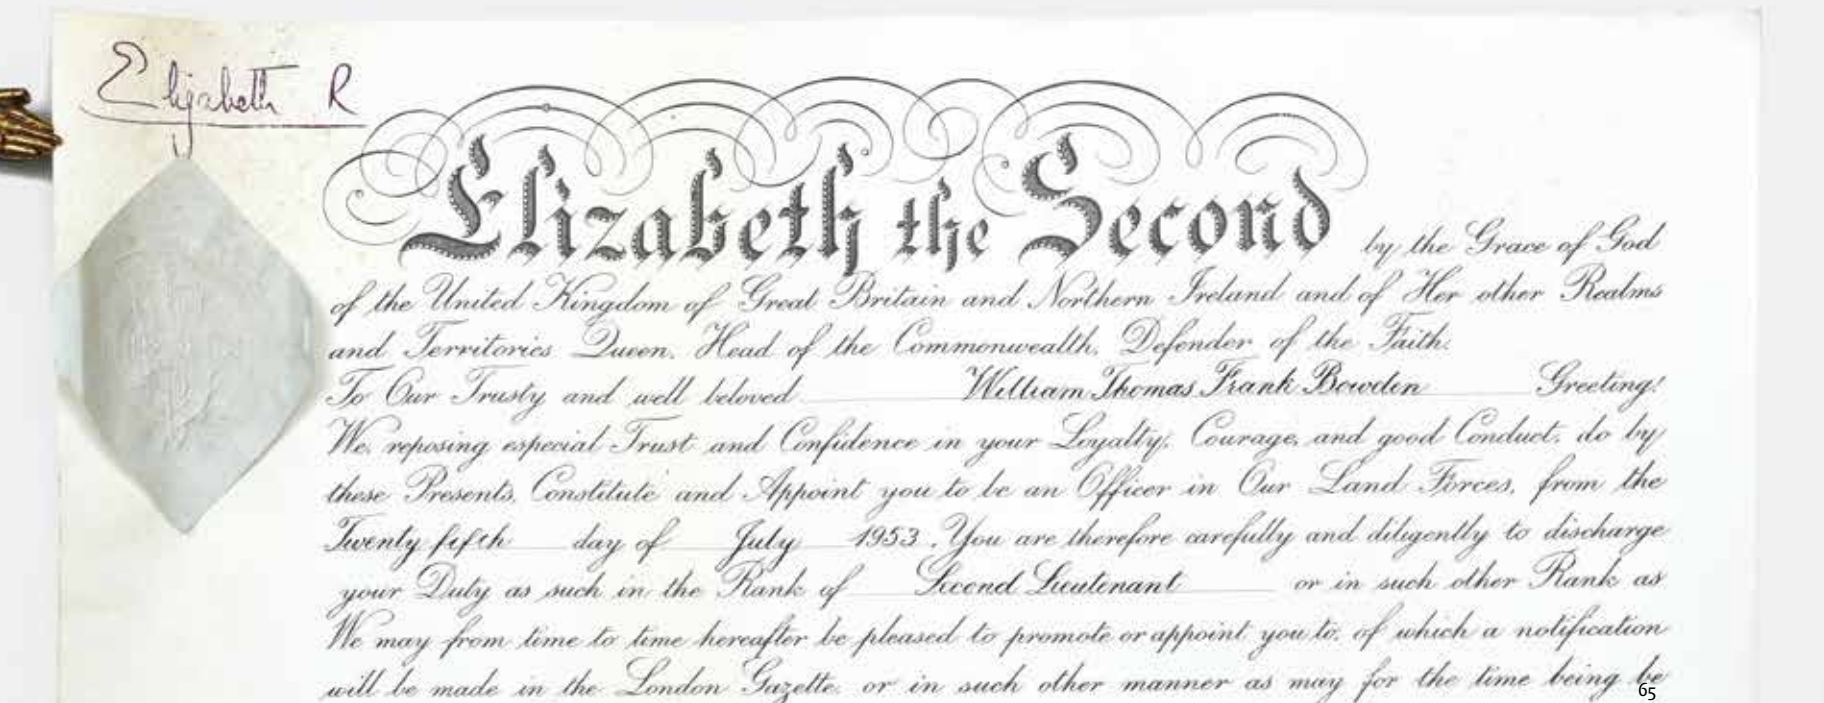 Elizabeth R
Elizabeth the Second by the Grace of God
of the United Kingdom of Great Britain and Northern Ireland and of Her other Realms
and Territories Queen, Head of the Commonwealth, Defender of the Faith.
To Our Trusty and well beloved William Thomas Frank Bowden Greeting!
We, reposing especial Trust and Confidence in your Loyalty, Courage, and good Conduct, do by
these Presents, Constitute and Appoint you to be an Officer in Our Land Forces, from the
Twenty fifth day of July 1953. You are therefore carefully and diligently to discharge
your Duty as such in the Rank of Second Lieutenant or in such other Rank as
We may from time to time hereafter be pleased to promote or appoint you to, of which a notification
will be made in the London Gazette, or in such other manner as may for the time being be
65